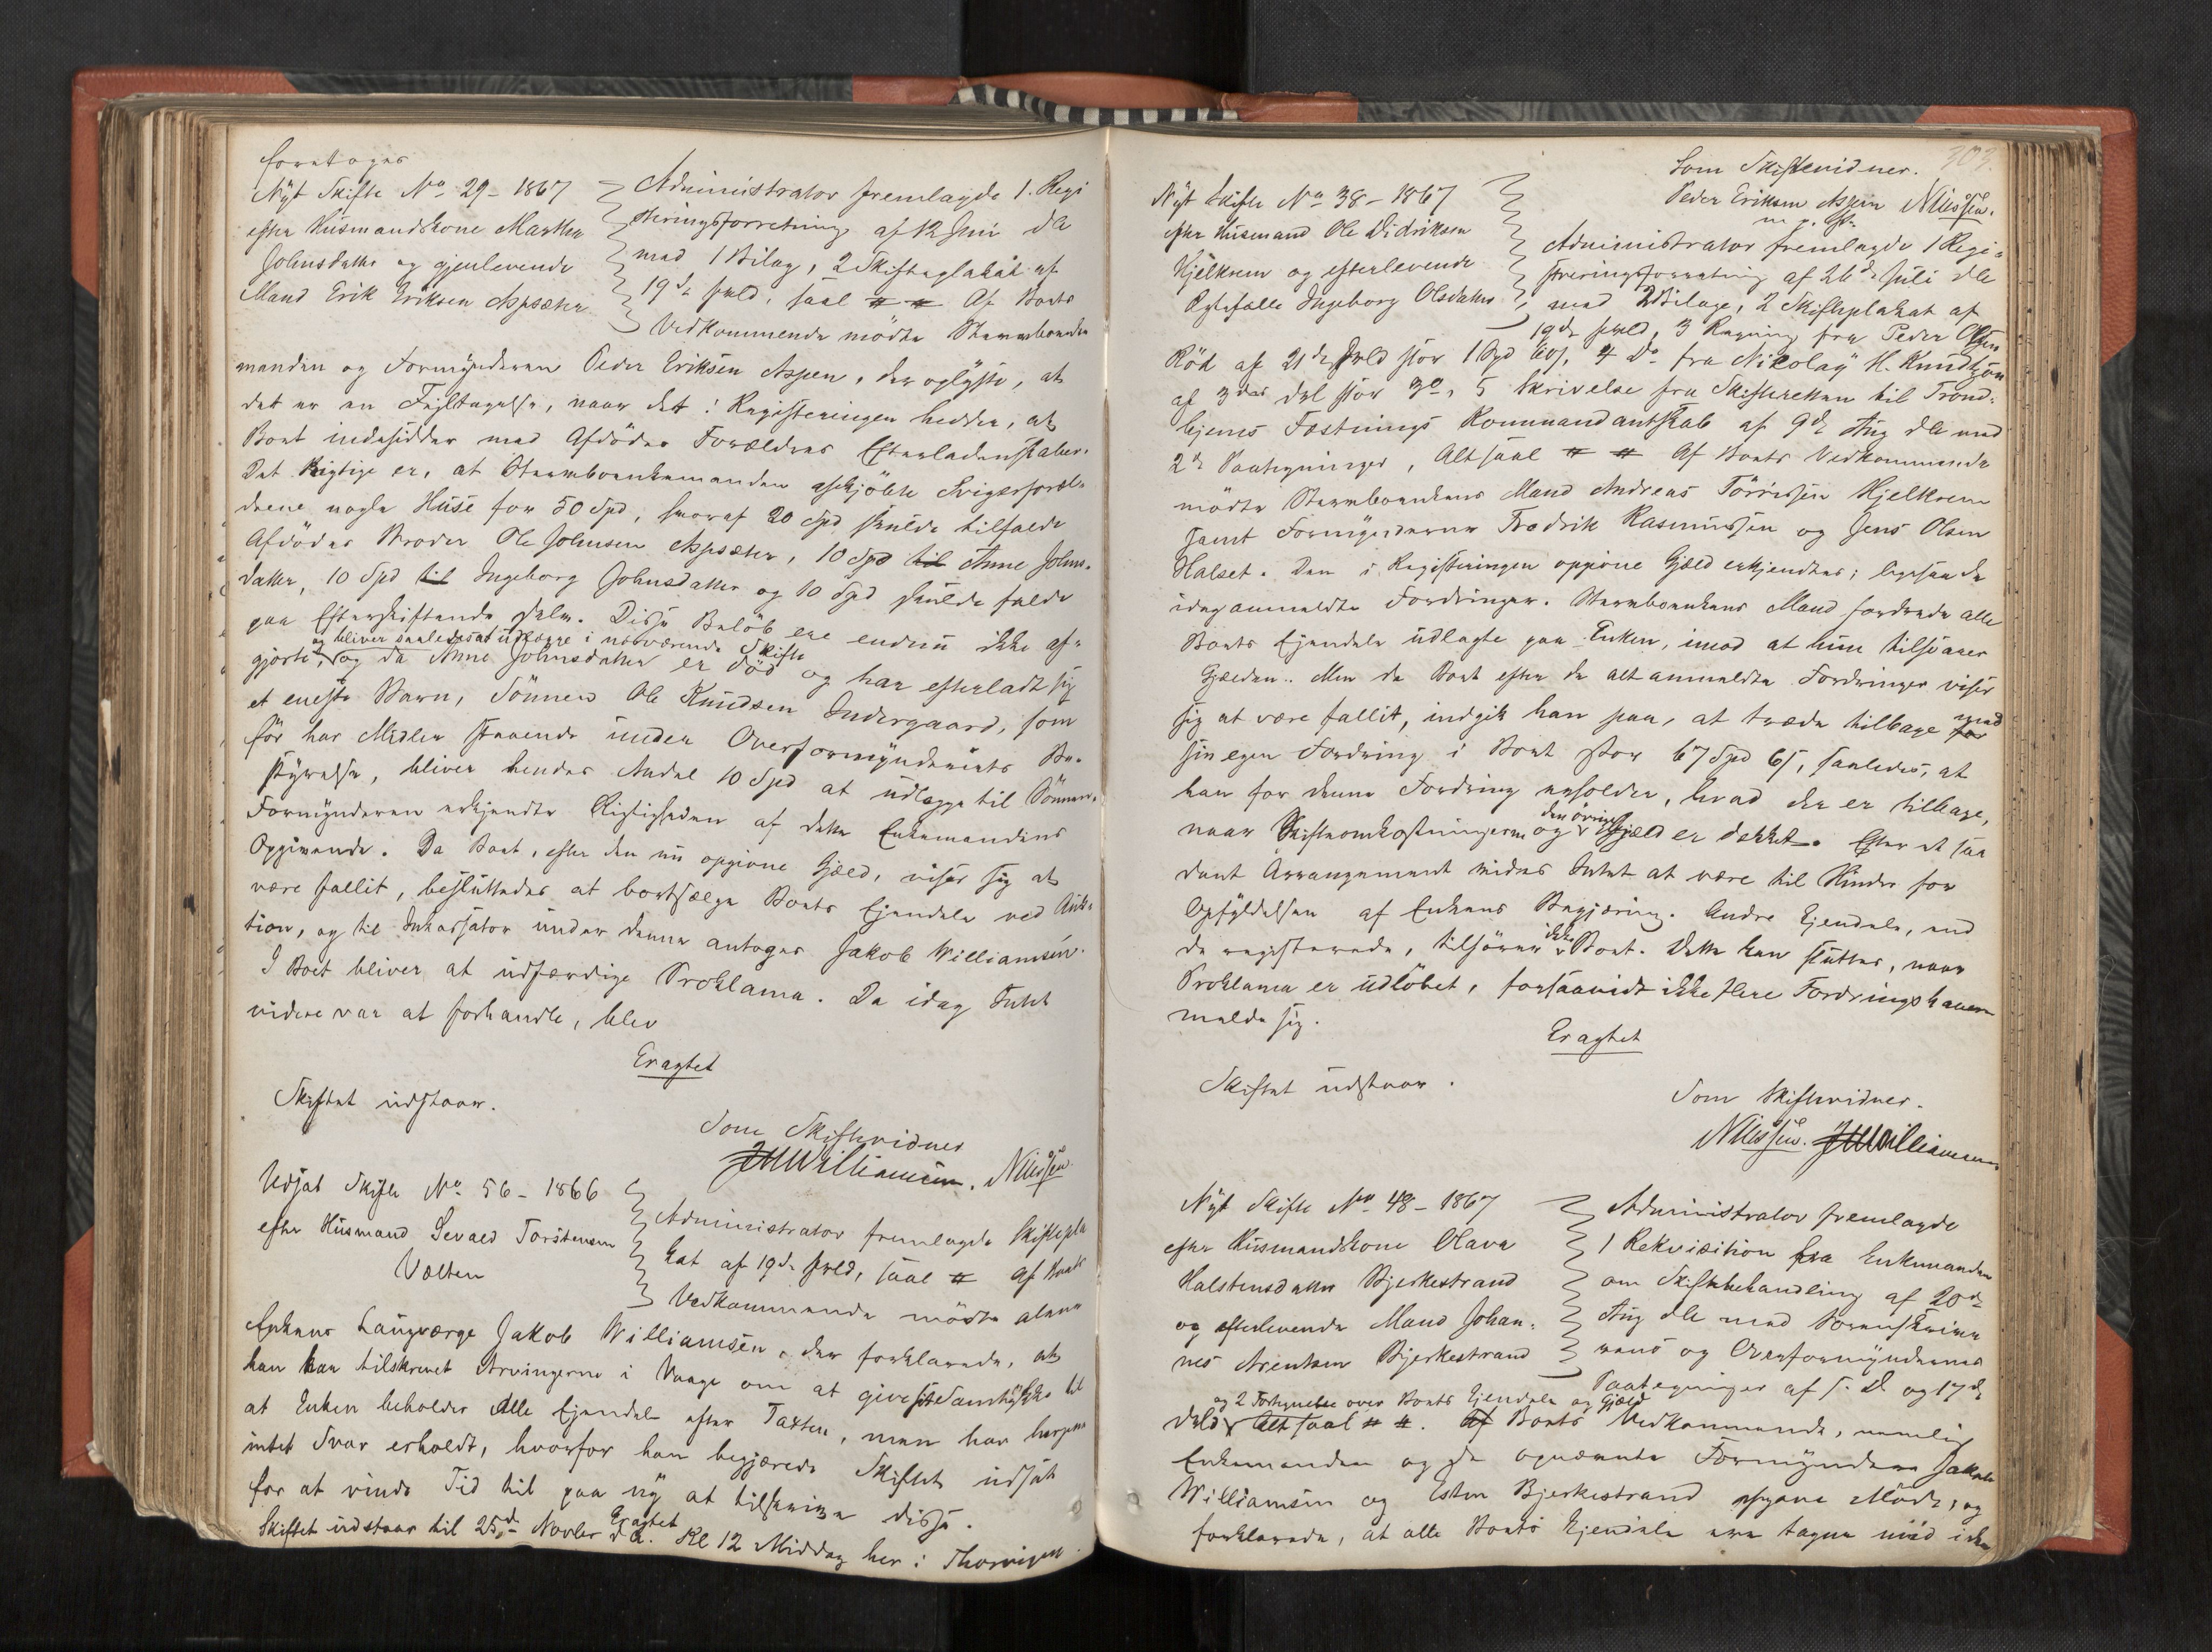 foretoges
Nyt Skifte No 29 - 1867
efter Husmandskone Marthe
Johnsdatter og gjenlevende
Mand Erik Eriksen Aspsæter
Administrator fremlagde 1. Regi
streringsforretning af 12 Juni d.A
med 1 Bilag, 2 Skifteplakat af
19de huld, saal. Af Boets
Vedkommende mødte Stervboenke
manden og Formynderen Peder Eriksen Aspen, der oplyste, at
det er en Fejltagelse, naar det i Registeringen hedder, at
Boet indesidder med Afdødes Forældres Efterladenskaber.
Det Rigtige er, at Stervboenkemanden afkjøbte Svigerforæl-
drene nogle Huse for 50 Spd, hvoraf 20 Spd skulde tilfalde
Afdødes Broder Ole Johnsen Aspsæter, 10 Spd til Anne Johns-
datter, 10 Spd til Ingeborg Johnsdatter og 10 Spd skulde falde
paa Efterskiftende selv. Disse Beløb ere endnu ikke af-
og bliver saaledes at udlægge i nærværende Skifte
gjorte, og da Anne Johnsdatter er død og har efterladt sig
et eneste Barn, Sønnen Ole Knudsen Indergaard, som
før har Midler staaende under Overformynderiets Be-
styrelse, bliver hendes Andel 10 Spd at udlægge til Sønnen.
Formynderen erkjendte Rigtigheden af dette Enkemandens
Opgivende. Da Boet, efter den nu opgivne Gjæld, viser sig at
være fallit, besluttedes at bortsælge Boets Ejendele ved Auk-
tion, og til Inkassator under denne antoges Jakob Williamsen.
I Boet bliver at udfærdige Proklama. Da idag Intet
videre var at forhandle, blev
Eragtet
Skiftet udstaar.
Som Skiftevidner
JWWilliamsen. Nilssen
Udsat Skifte No 56 - 1866
efter Husmand Sevald Torstensen
Volden
Administrator fremlagde Skiftepla
kat af 19de huld, saal. Af Boets
Vedkommende mødte alene
Enkens Laugværge Jakob Williamsen, der forklarede, at
han har tilskrevet Arvingerne i Vaage om at give sit Samtykke til
at Enken beholder Alle Ejendele efter Taxten, men har herpaa
intet Svar erholdt, hvorfor han begjærede Skiftet udsat
for at vinde Tid til paa ny at tilskrive disse.
Eragtet
Skiftet udstaar til 25de Novbr d.A. Kl 12 Middag her i Thorvigen.
303.
Som Skiftevidner.
Peder Eriksen Aspen Nilssen.
m. p. P.
Nyt Skifte No 38 - 1867
efter Husmand Ole Didriksen
Hjelkrem og efterlevende
Ægtefælle Ingeborg Olsdatter
Administrator fremlagde 1 Regi-
streringsforretning af 26de Juli d.A
med 2 Bilage, 2 Skifteplakat af
19de huld, 3 Regning fra Peder Olsen
Röd af 21de huld stor 1 Spd 60 s, 4 Do fra Nikolay H. Knudtzon
af 3die dsl stor, 5 Skrivelse fra Skifteretten til Trond-
hjems Fæstnings Kommandantskab af 9de Aug d.A med
2de Paategninger, Alt saal. Af Boets Vedkommende
mødte Stervboenkens Mand Andreas Törrissen Hjelkrem
samt Formynderne Fredrik Rasmussen og Jens Olsen
Halset. Den i Registeringen opgivne Gjæld erkjendtes; ligesaa de
idag anmeldte Fordringer. Stervboenkens Mand forlangte alle
Boets Ejendele udlagte paa Enken, imod at hun tilsvarer
Gjælden. Men da Boet efter de alt anmeldte Fordringer viser
sig at være fallit, indgik han paa, at træde tilbage med
sin egen Fordring i Boet stor 67 Spd 6 s, saaledes, at
han for denne Fordring erholder, hvad der er tilbage,
den øvrige
naar Skifteomkostningerne og Gjæld er dekket. Efter et saa
dant Arrangement vides Intet at være til Hinder for
Opfyldelsen af Enkens Begjæring. Andre Ejendele, end
de registrerede, tilhører ikke Boet. Dette kan sluttes, naar
Proklama er udløbet, forsaavidt ikke flere Fordringshavere
melde sig.
Eragtet
Skiftet udstaar.
Som Skiftevidner.
Nilssen. JWWilliamsen
Nyt Skifte No 48 - 1867
efter Husmandskone Olava
Halstensdatter Bjerkestrand
og efterlevende Mand Johan-
nes Arentsen Bjerkestrand
Administrator fremlagde
1 Rekvisition fra Enkemanden
om Skiftebehandling af 20de
Aug d.A med Sorenskrive
rens og Overformynderens
Paategninger af s. D. og 17de
og 2 Fortegnelse over Boets Ejendele og Gjæld
dsld Alt saal. Af Boets Vedkommende, nemlig
Enkemanden og de opnævnte Formyndere Jakob
Williamsen og Esten Bjerkestrand afgave Møde, og
forklarede, at alle Boets Ejendele ere tagne med i den